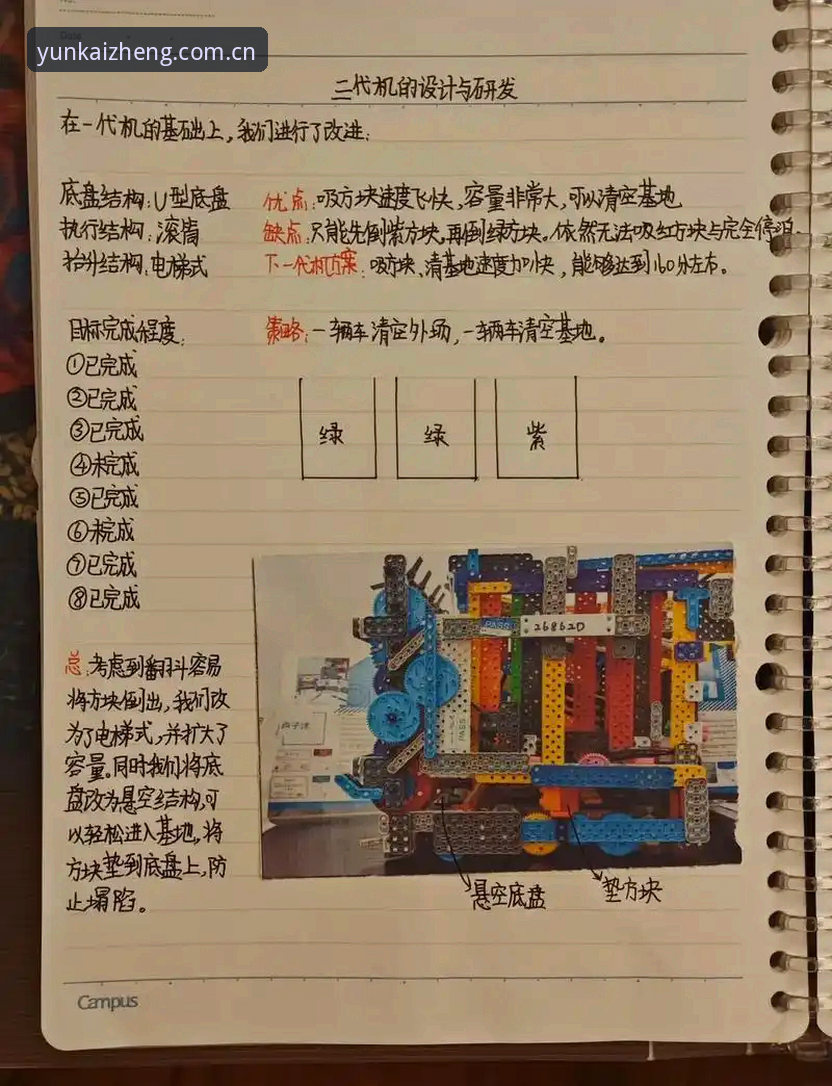 yunkaizheng.com.cn
二代机的设计与研发
在一代机的基础上,我们进行了改进:
底盘结构:U型底盘 优点:吸方块速度飞快,容量非常大,可以清空基地
执行结构:滚筒 缺点:只能先倒紫方块,再倒绿方块。依然无法吸红方块与完全停泊。
抬升结构:电梯式 下一代机方案:吸方块、清基地速度加快,能够达到160分左右。
目标完成程度: 策略:一辆车清空外场,一辆车清空基地。
①已完成
②已完成
③已完成
④未完成
⑤已完成
⑥未完成
⑦已完成
⑧已完成
绿 绿 紫
总:考虑到翻斗容易
将方块倒出,我们改
为了电梯式,并扩大了
容量。同时我们将底
盘改为悬空结构,可
以轻松进入基地,将
方块垫到底盘上,防
止塌陷。
PASS
26862D
PASS
悬空底盘 垫方块
Campus